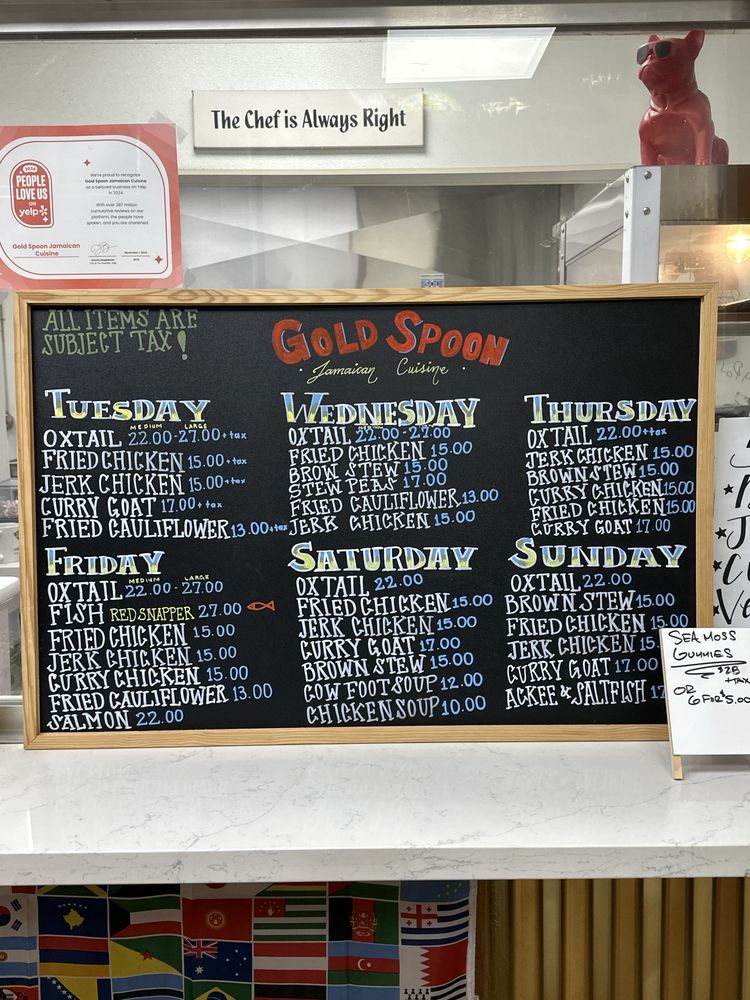 The Chef is Always Right
2024
PEOPLE
LOVE US
ON
yelp
We're proud to recognize
Gold Spoon Jamaican Cuisine
as a beloved business on Yelp
in 2024.
With over 287 million
cumulative reviews on our
platform, the people have
spoken, and you are cherished.
Gold Spoon Jamaican
Cuisine
ALL ITEMS ARE
SUBJECT TAX!
GOLD SPOON
Jamaican Cuisine
TUESDAY
MEDIUM LARGE
OXTAIL 22.00-27.00+tax
FRIED CHICKEN 15.00+tax
JERK CHICKEN 15.00+tax
CURRY GOAT 17.00+tax
FRIED CAULIFLOWER 13.00+tax
WEDNESDAY
OXTAIL 22.00-27.00
FRIED CHICKEN 15.00
BROWN STEW 15.00
STEW PEAS 17.00
FRIED CAULIFLOWER 13.00
JERK CHICKEN 15.00
THURSDAY
OXTAIL 22.00+tax
JERK CHICKEN 15.00
BROWN STEW 15.00
CURRY CHICKEN 15.00
FRIED CHICKEN 15.00
CURRY GOAT 17.00
FRIDAY
MEDIUM LARGE
OXTAIL 22.00-27.00
FISH RED SNAPPER 27.00
FRIED CHICKEN 15.00
JERK CHICKEN 15.00
CURRY CHICKEN 15.00
FRIED CAULIFLOWER 13.00
SALMON 22.00
SATURDAY
OXTAIL 22.00
FRIED CHICKEN 15.00
JERK CHICKEN 15.00
CURRY GOAT 17.00
BROWN STEW 15.00
COW FOOT SOUP 12.00
CHICKEN SOUP 10.00
SUNDAY
OXTAIL 22.00
BROWN STEW 15.00
FRIED CHICKEN 15.00
JERK CHICKEN 15
CURRY GOAT 17.00
ACKEE & SALTFISH 17
SEA MOSS
GUMMIES
$28
+TAX
OR
6 FOR $5.00